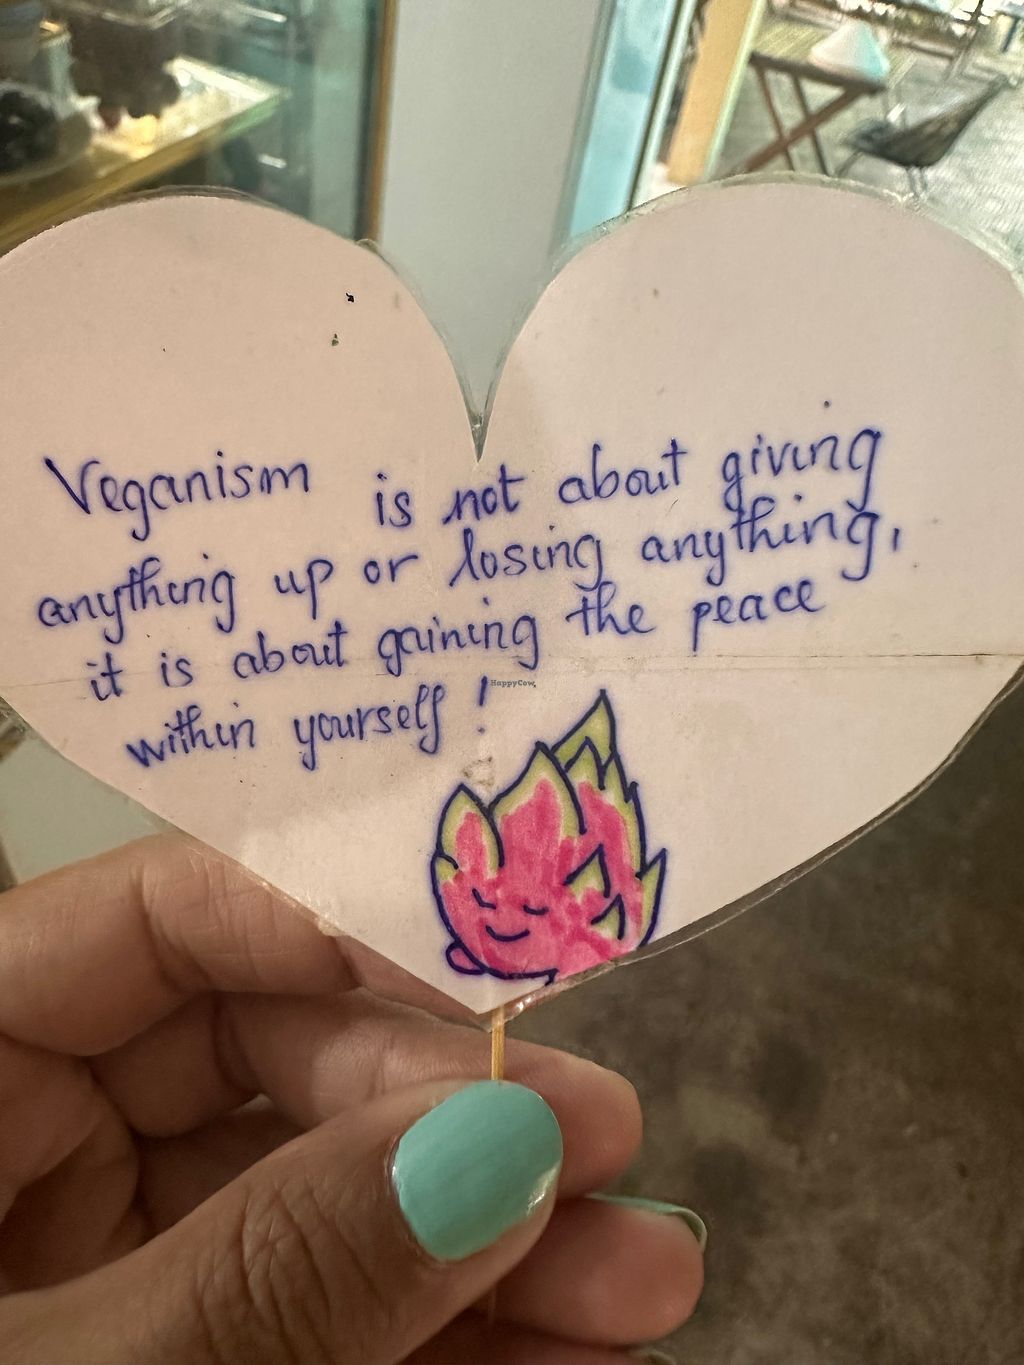 Veganism is not about giving
anything up or losing anything,
it is about gaining the peace
within yourself!
HappyCow